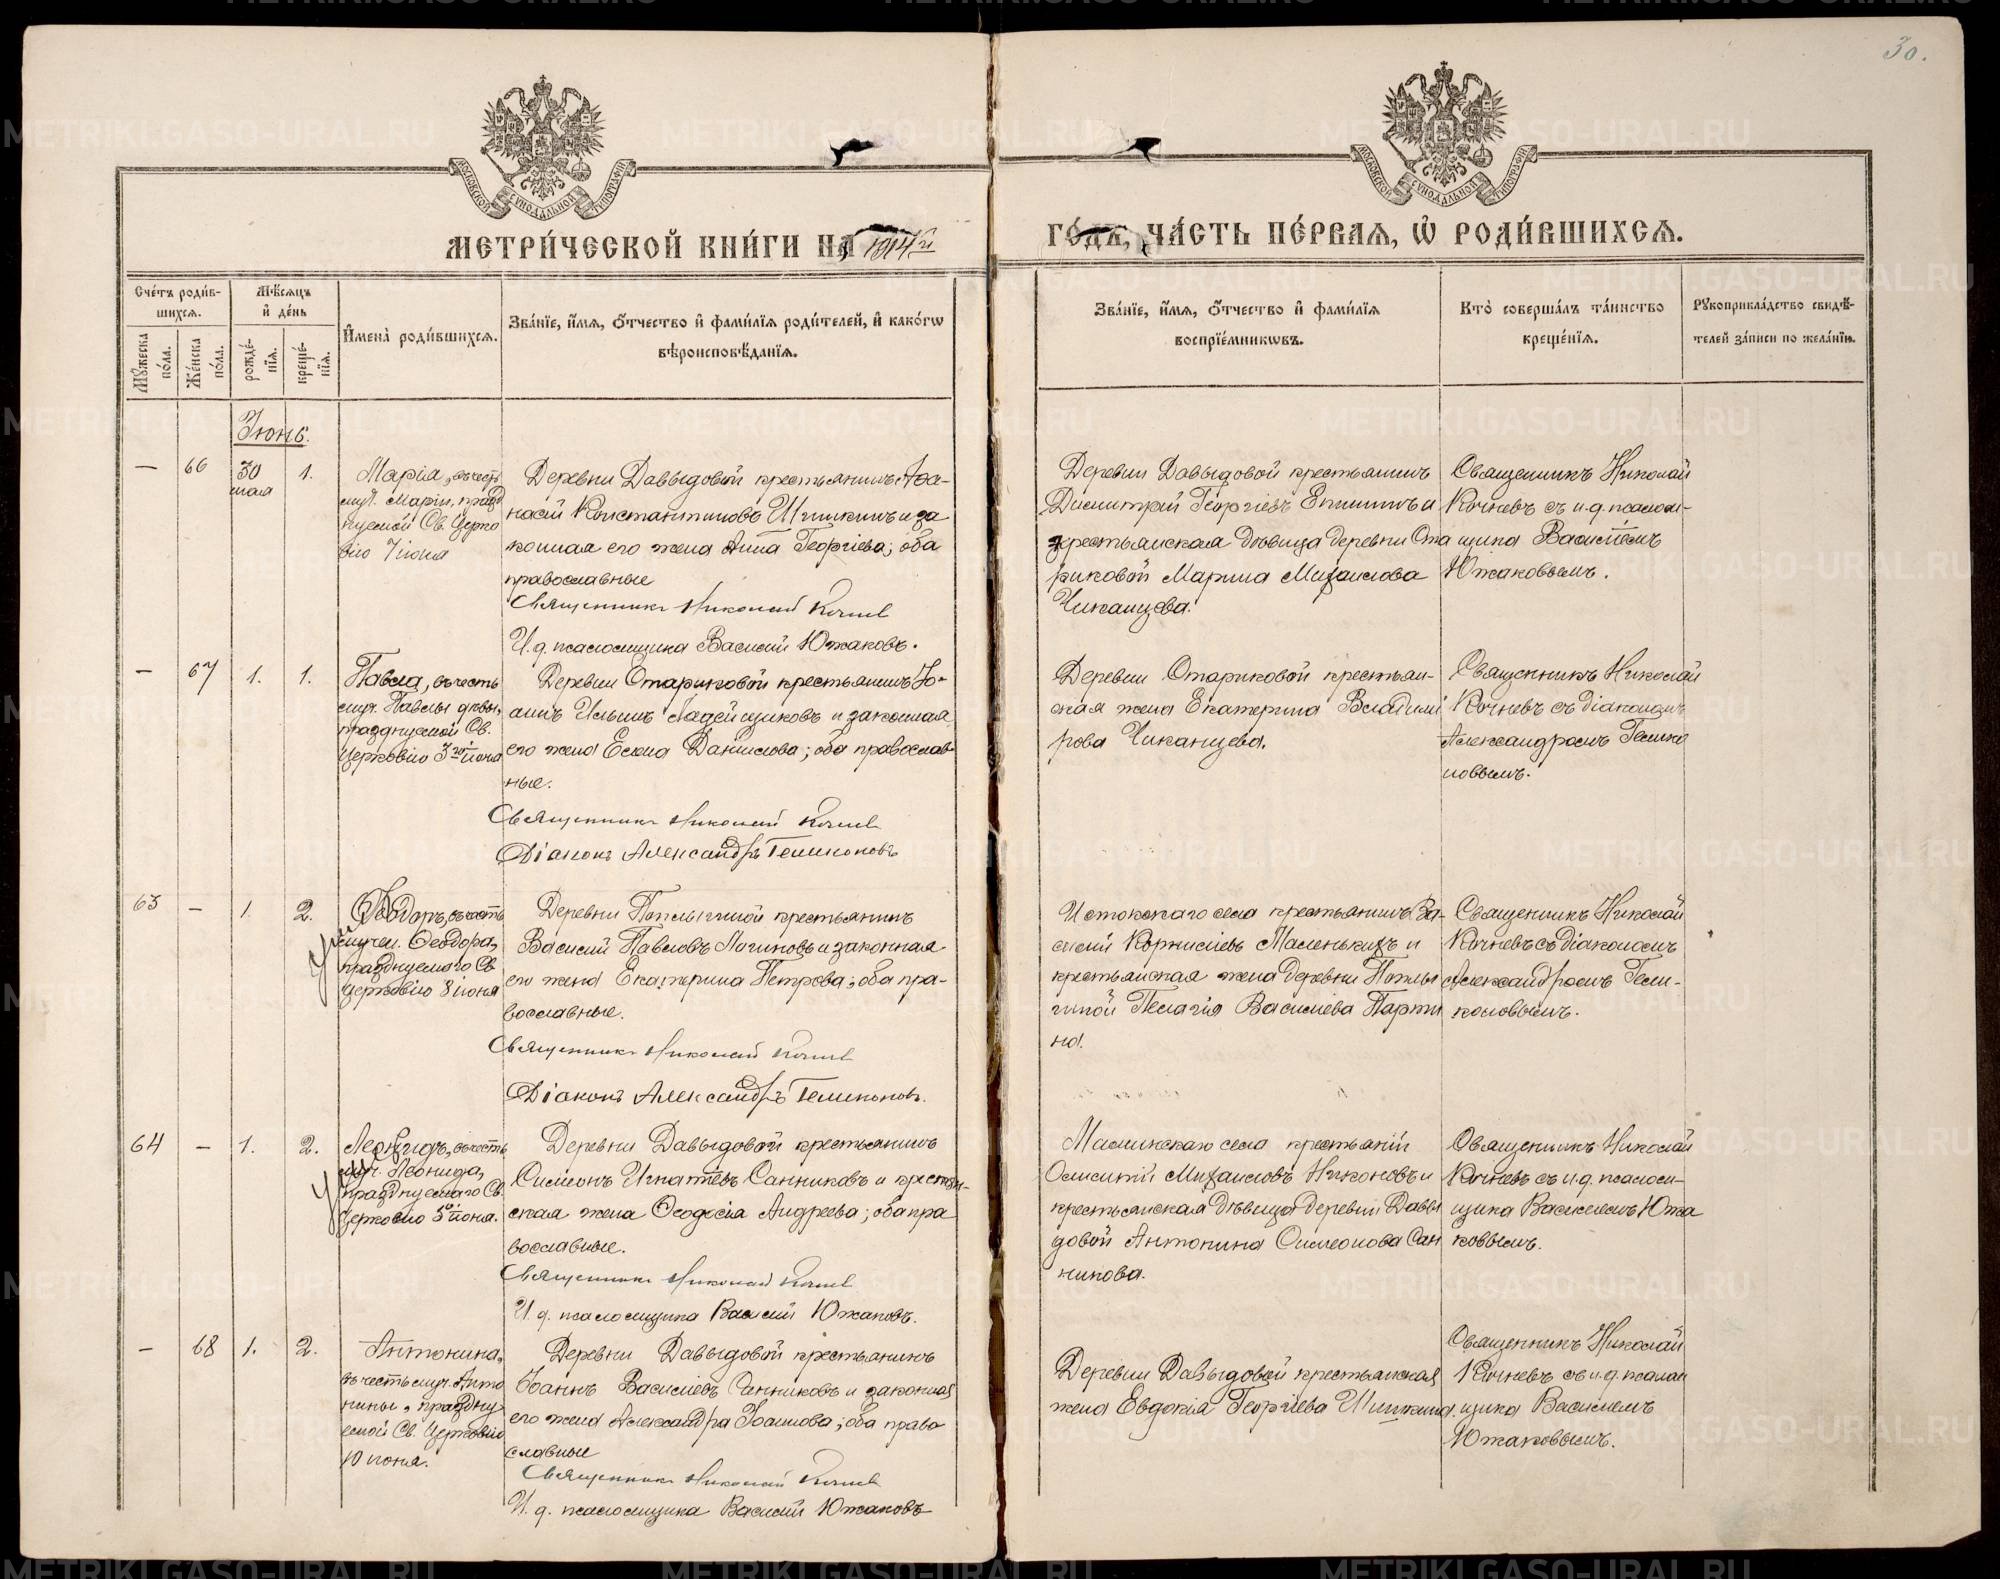 30.
МОСКОВСКОЙ СѴНОДАЛЬНОЙ ТИПОГРАФІИ
МОСКОВСКОЙ СѴНОДАЛЬНОЙ ТИПОГРАФІИ
МЕТРИ́ЧЕСКОЙ КНИ́ГИ НА 1914й
ГО́ДЪ, ЧА́СТЬ ПЕ́РВАЯ, Ѡ РОДИ́ВШИХСЯ.
Сче́тъ роди́в-
шихся.
Мѣ́сяцъ
и де́нь
Му́жеска
по́ла.
Же́нска
по́ла.
рожде́-
нїя.
креще́-
нїя.
Имена̀ роди́вшихся.
Зва́нїе, и́мя, о́тчество и фами́лїя роди́телей, и како́гѡ
вѣроисповѣ́данїя.
Зва́нїе, и́мя, о́тчество и фами́лїя
воспрїе́мникѡвъ.
Кто̀ соверша́лъ та́инство
креще́нїя.
Рукоприкла́дство свидѣ́-
телей за́писи по жела́нїю.
Іюнь.
— 66 30 мая 1.
Марія, въ честь
муч. Маріи, празд
нуемой Св. Церко
вію 7 іюня
Деревни Давыдовой крестьянинъ Аѳа-
насій Константиновъ Шишкинъ и за
конная его жена Анна Георгіева; оба
православные
Священникъ Николай Кочнев
И. д. псаломщика Василій Южаковъ.
Деревни Давыдовой крестьянинъ
Димитрій Георгіевъ Епишинъ и
крестьянская дѣвица деревни Ста
риковой Марина Михаилова
Чиканцева.
Священникъ Николай
Кочневъ съ и. д. псалом-
щика Василіемъ
Южаковымъ.
— 67 1. 1.
Павла, въ честь
муч. Павлы дѣвы,
празднуемой Св.
Церковію 3го іюня
Деревни Стариковой крестьянинъ Іо-
аннъ Ильинъ Ладейщиковъ и законная
его жена Елена Данилова; оба православ-
ные.
Священникъ Николай Кочнев
Діаконъ Александръ Геликоновъ
Деревни Стариковой крестьян-
ская жена Екатерина Владими
рова Чиканцева.
Священникъ Николай
Кочневъ съ діакономъ
Александромъ Гелико
новымъ.
63 — 1. 2.
Ѳеодоръ, въ честь
мучен. Ѳеодора,
празднуемаго Св
Церковію 8 іюня
Василій Павловъ Логиновъ и законная
его жена Екатерина Петрова; оба пра-
вославные.
Священникъ Николай Кочнев
Діаконъ Александръ Геликоновъ.
Истокскаго села крестьянинъ Ва-
силій Корниліевъ Маленькихъ и
крестьянская жена деревни
Пелагія Василіева
на.
Священникъ Николай
Кочневъ съ діакономъ
Александромъ Гели-
коновымъ.
64 — 1. 2.
Леонидъ, въ честь
муч. Леонида,
празднуемаго Св.
Церковію 5го іюня.
Деревни Давыдовой крестьянинъ
Симеонъ Игнатіевъ Санниковъ и крестьян-
ская жена Ѳеодосія Андреева; оба пра
вославные.
Священникъ Николай Кочнев
И. д. псаломщика Василій Южаковъ.
Маминскаго села крестьянин
Михаиловъ Никоновъ и
крестьянская дѣвица деревни Давы
довой Антонина Симеонова Сан
никова.
Священникъ Николай
Кочневъ съ и. д. псалом-
щика Василіемъ Южа
ковымъ.
— 68 1. 2.
Антонина,
въ честь муч. Анто
нины, праздну
емой Св. Церковію
10 іюня.
Деревни Давыдовой крестьянинъ
Іоаннъ Василіевъ Санниковъ и законная
его жена Александра Іоаннова; оба право
славные
Священникъ Николай Кочнев
И. д. псаломщика Василій Южаковъ
Деревни Давыдовой крестьянская
жена Евдокія Георгіева Шишкина.
Священникъ Николай
Кочневъ съ и. д. псалом
щика Василіемъ
Южаковымъ.
METRIKI.GASO-URAL.RU